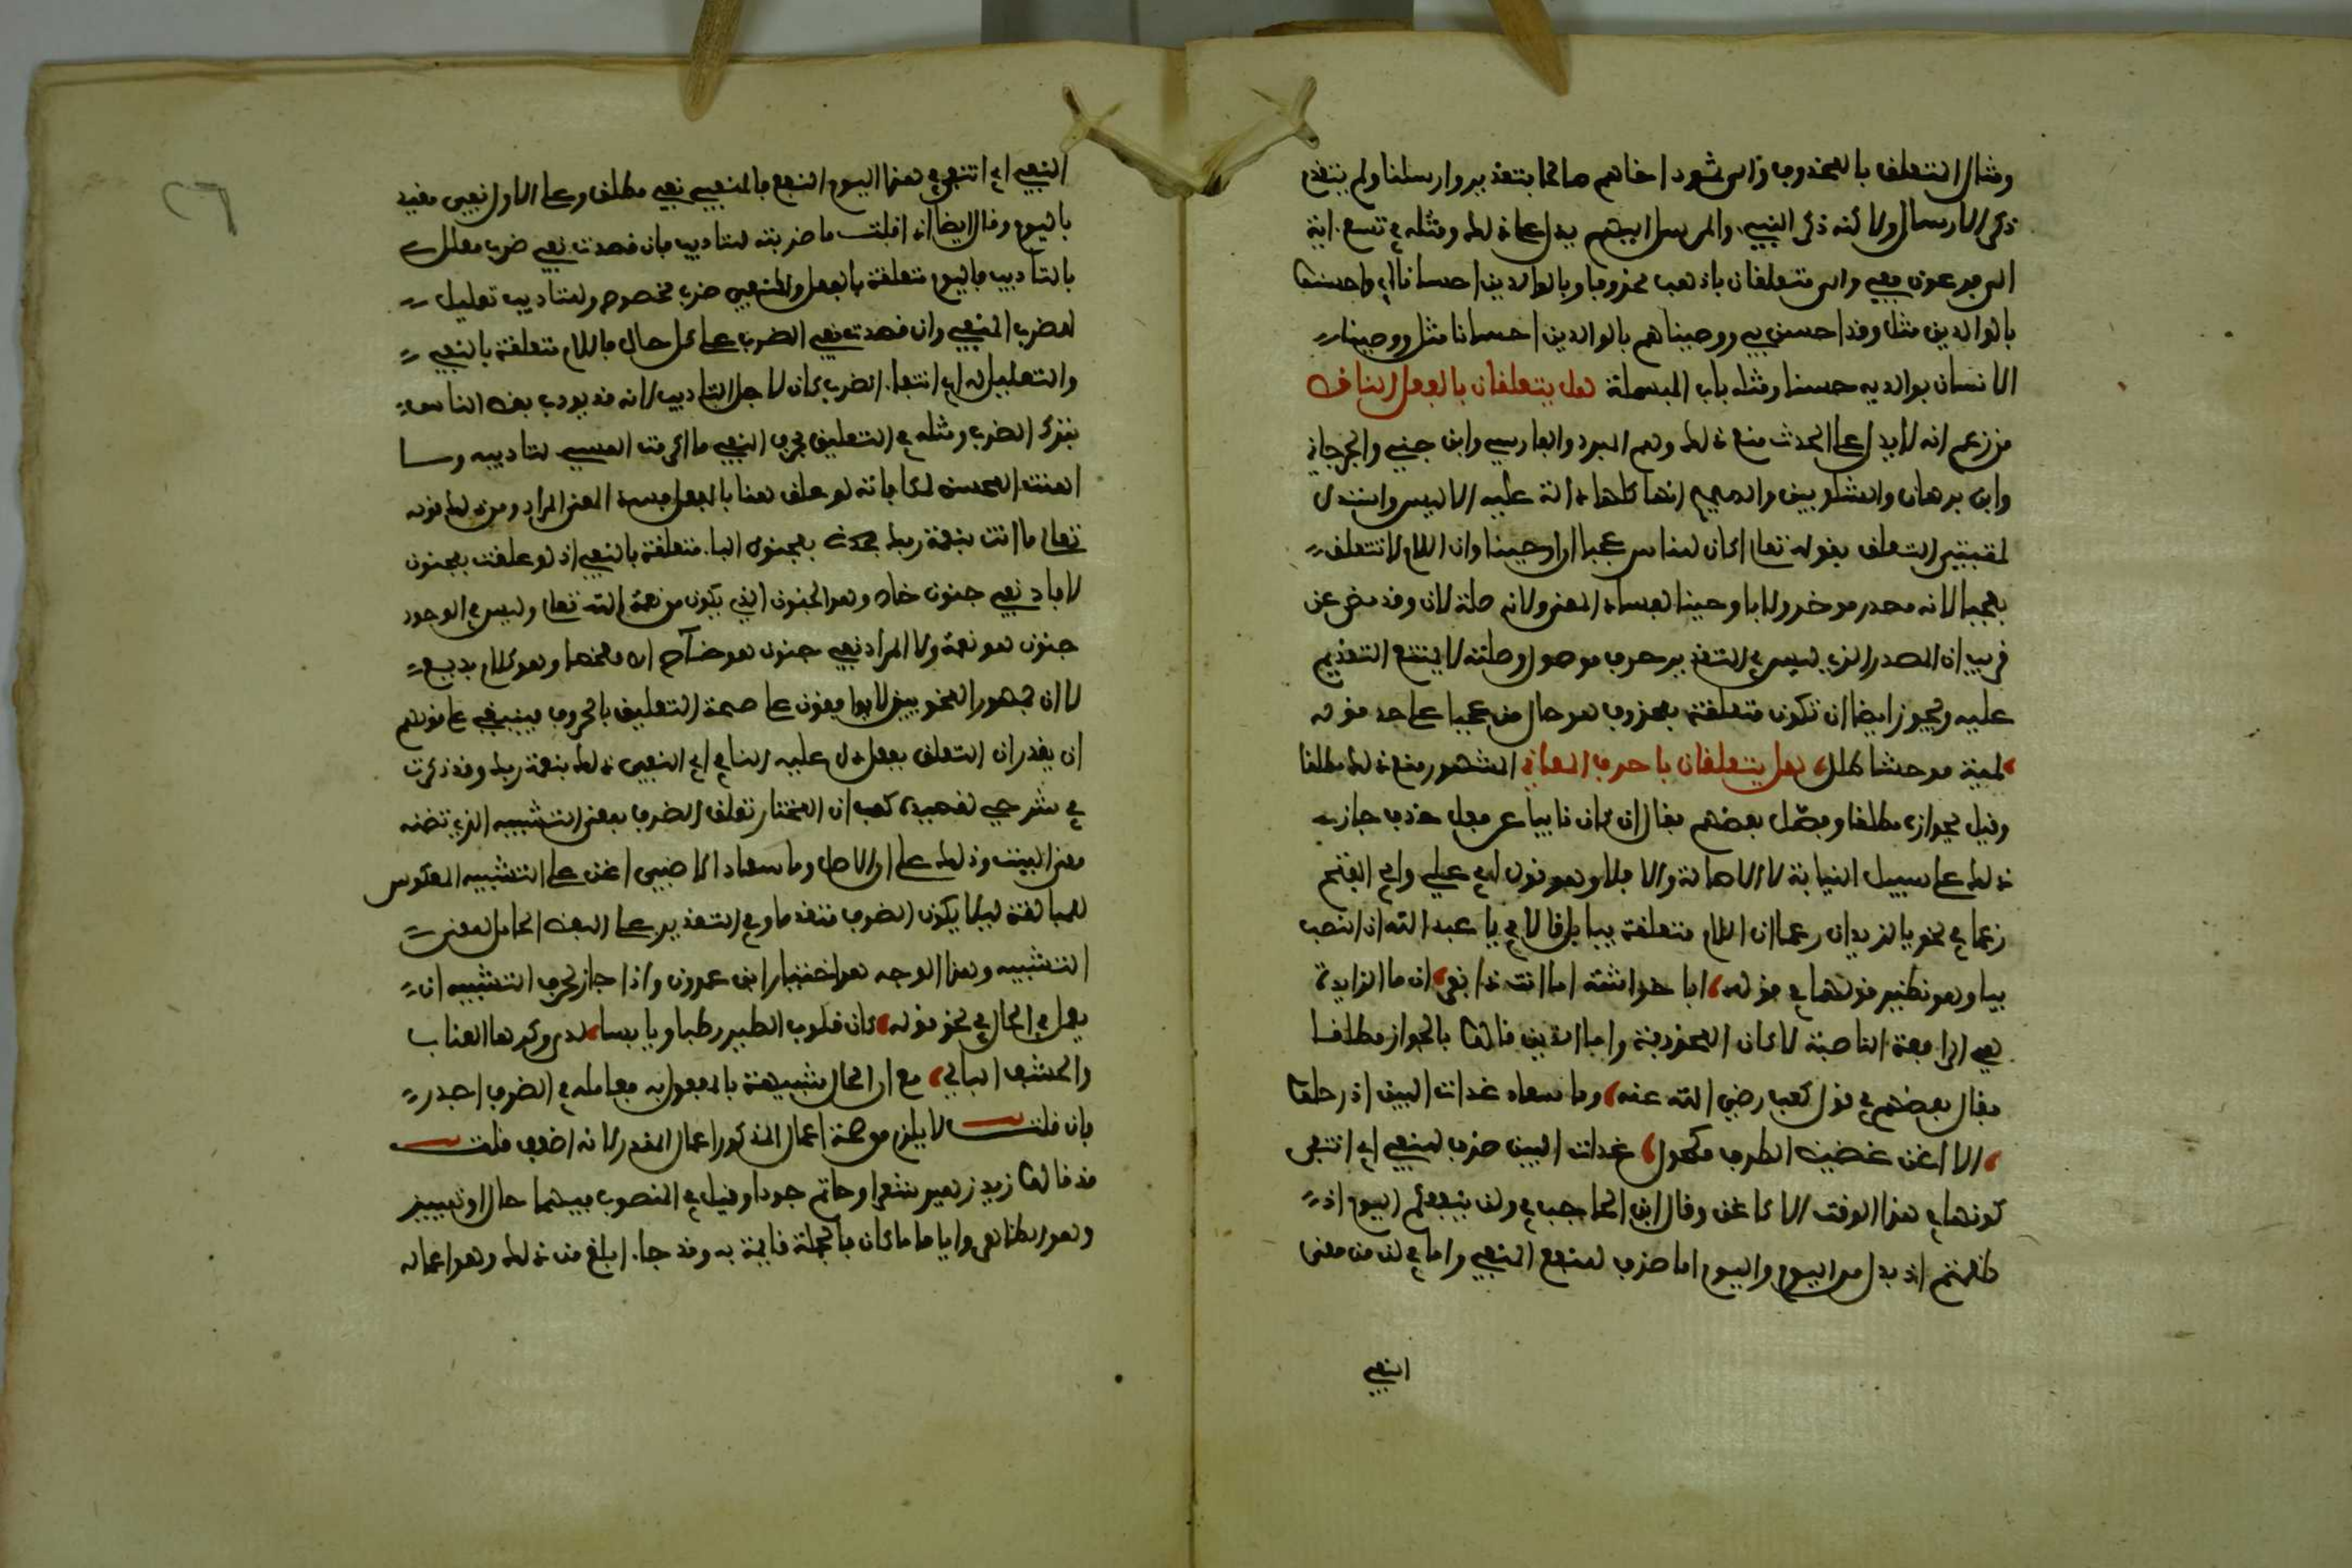 ومثال التعلق بالمحذوف والى ثمود اخاهم صالحا بتقدير وارسلنا ولم يتقدم
ذكر الارسال ولاكن ذكر النبي والمرسل اليهم يدل على ذلك ومثله في تسع اية
الى فرعون ففي والى متعلقان باذهب محذوفا وبالوالدين احسانا اي واحسنوا
بالوالدين مثل وقد احسن بي ووصيناهم بالوالدين احسانا مثل ووصينا
الانسان بوالديه حسنا ومثله باب البسملة هل يتعلقان بالفعل الناقص
من زعم انه لا يدل على الحدث منع ذلك وهم المبرد والفارسي وابن جني والجرجاني
وابن برهان والشلوبين والصحيح انها كلها دالة عليه الا ليس واستدل
لمثبتي التعلق بقوله تعالى اكان للناس عجبا ان اوحينا وان اللام لا تتعلق
بعجبا لانه مصدر موخر ولا باوحينا لفساد المعنى ولانه صلة لان وقد مضى عن
قريب ان المصدر الذي ليس في التقدير حرف موصول وصلته لا يمتنع التقديم
عليه ويجوز ايضا ان تكون متعلقة بمحذوف هو حال من عجبا على حد قوله
لمية موحشا طلل هل يتعلقان باحرف المعاني المشهور منع ذلك مطلقا
وقيل بجوازه مطلقا وفصل بعضهم فقال ان كان نايبا عن فعل حذف جاز
ذلك على سبيل النيابة لا الاصالة والا فلا وهو قول ابي علي وابي الفتح
زعما في نحو يا لزيد ان اللام متعلقة بيا بل قالا في يا عبد الله ان النصب
بيا وهو نظير قولهما في قوله ابا خراشة اما انت ذا نفر ان ما الزايدة
هي الرافعة الناصبة لا كان المحذوفة واما الذين قالوا بالجواز مطلقا
فقال بعضهم في قول كعب رضي الله عنه وما سعاد غداة البين اذ رحلوا
الا اغن غضيض الطرف مكحول غداة البين ظرف للنفي اي انتفى
كونها في هذا الوقت الا كاغن وقال ابن الحاجب في ولن ينفعكم اليوم اذ
ظلمتم اذ بدل من اليوم واليوم اما ظرف للنفع المنفي واما في لن من معنى
النفي
النفي اي انتفى في هذا اليوم النفع فالمنفي نفي مطلق وعلى الاول نفي مقيد
باليوم وقال ايضا اذا قلت ما ضربته للتاديب فان قصدت نفي ضرب معلل
بالتاديب فاللام متعلقة بالفعل والمنفي ضرب مخصوص وللتاديب تعليل
للضرب المنفي وان قصدت نفي الضرب على كل حال فاللام متعلقة بالنفي
والتعليل له اي انتفاء الضرب كان لاجل التاديب لانه قد يودب بعض الناس
بترك الضرب ومثله في التعليق بحرف النفي ما اكرمت المسيء لتاديبه وما
اهنت المحسن لمكافاته لو علق هنا بالفعل فسد المعنى المراد ومن ذلك قوله
تعالى ما انت بنعمة ربك بمجنون الباء متعلقة بالنفي اذ لو علقت بمجنون
لافاد نفي جنون خاص وهو الجنون الذي يكون من نعمة الله تعالى وليس في الوجود
جنون هو نعمة ولا المراد نفي جنون خاص اه ملخصا وهو كلام بديع
لا ان جمهور النحويين لا يوافقون على صحة التعليق بالحرف فينبغي على قولهم
ان يقدر ان التعلق بفعل دل عليه النافي اي انتفى ذلك بنعمة ربك وقد ذكرت
في شرحي لقصيدة كعب ان المختار تعلق الظرف بمعنى التشبيه الذي تضمنه
معنى البيت وذلك على ان الاصل وما سعاد الا ظبي اغن على التشبيه المعكوس
للمبالغة ليلا يكون الظرف متقدما في التقدير على اللفظ الحامل لمعنى
التشبيه وهذا الوجه هو اختيار ابن عمرون واذا جاز لحرف التشبيه ان
يعمل في الحال في نحو قوله كان قلوب الطير رطبا ويابسا لدى وكرها العناب
والحشف البالي مع ان الحال شبيهة بالمفعول به فعمله في الظرف اجدر
فان قلت لا يلزم من صحة اعمال المذكور اعمال المقدر لانه اضعف قلت
قد قالوا زيد زهير شعرا وحاتم جودا وقيل في المنصوب فيهما حال او تمييز
وهو الظاهر وايا ما كان فالحجة قايمة به وقد جاء ابلغ من ذلك وهو اعماله
٢٦